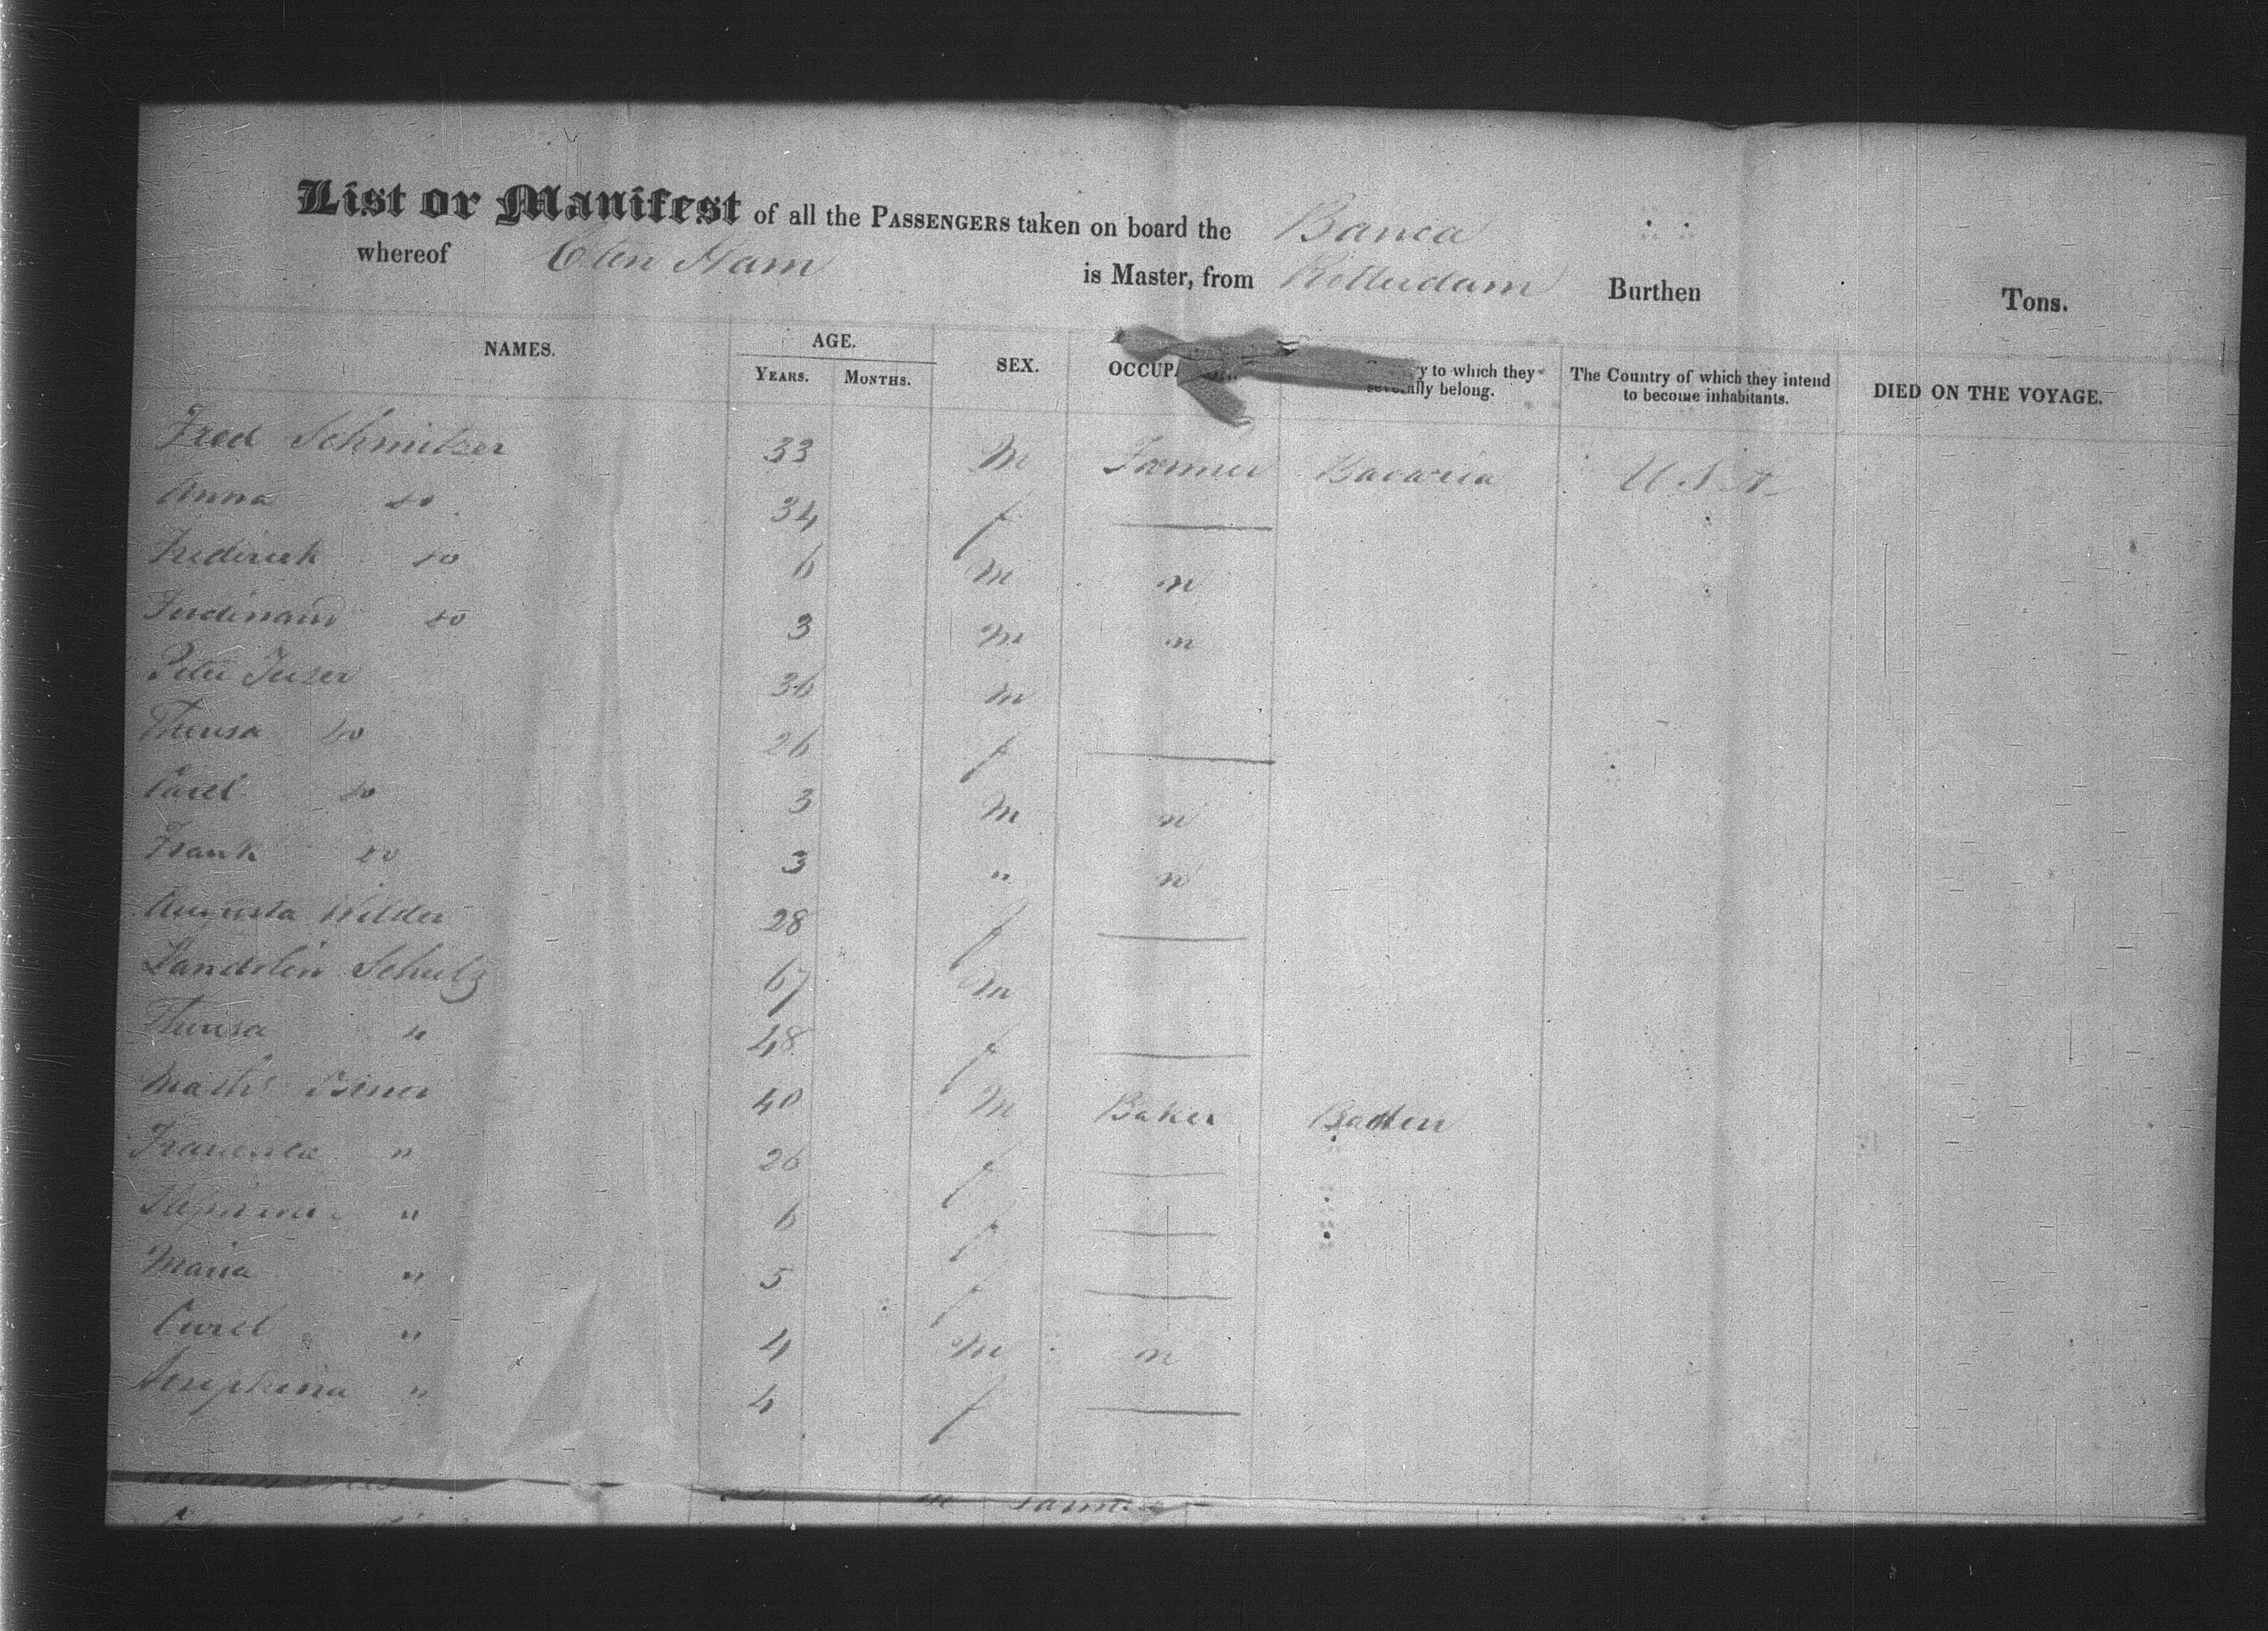 List or Manifest of all the PASSENGERS taken on board the Banca
whereof is Master, from Rotterdam Burthen Tons.
NAMES. AGE. YEARS. MONTHS. SEX. OCCUPA to which they severally belong. The Country of which they intend to become inhabitants. DIED ON THE VOYAGE.
Fred Schmitzer 33 M Farmer Bavaria U S A
Anna do 34 f
Frederick do 6 M n
Ferdinand do 3 M n
Peter 36 M
Theresa do 26 f
Carel do 3 M n
Frank do 3 " n
Augusta Wilder 28 f
Landolin Schulz 67 M
Theresa " 48 f
40 M Baker Baden
Francisca " 26 f
" 6 f
Maria " 5 f
Carel " 4 M n
Seraphina " 4 f